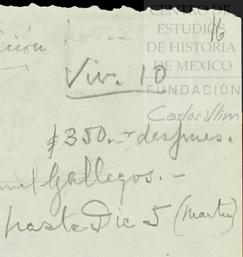 CENTRO DE
ESTUDIOS
DE HISTORIA
DE MEXICO
FUNDACIÓN
Carlos Slim
16
Viv. 10
$350.- después.
Gallegos.-
hasta Dic 5 (martes)